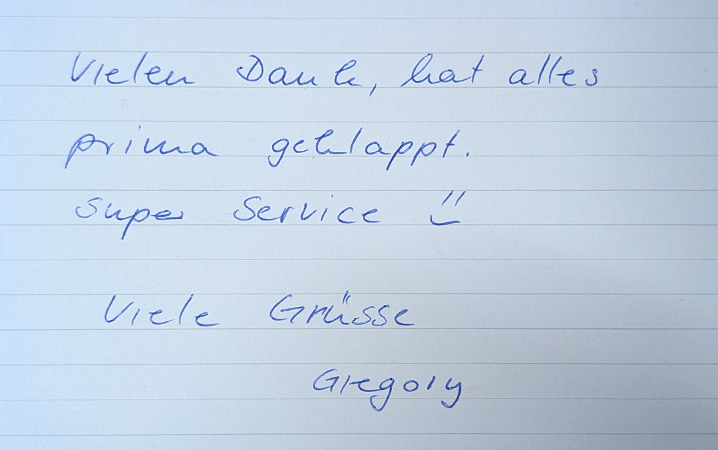 Vielen Dank, hat alles
prima geklappt.
Super Service ü
Viele Grüsse
Gregory